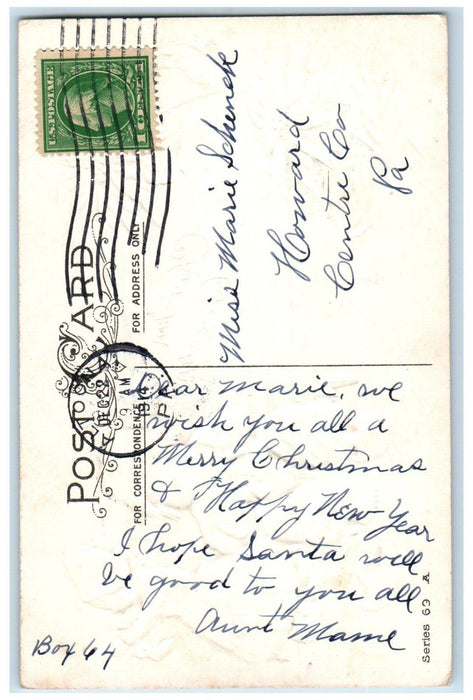 U.S. POSTAGE
1 CENT 1
POST CARD
FOR ADDRESS ONLY
FOR CORRESPONDENCE
DEC 22
9 M
191
Miss Marie Schenck
Howard
Centre Co
Pa
Dear Marie, we
wish you all a
Merry Christmas
& Happy New Year
I hope Santa will
be good to you all
Aunt Mame
Box 64
Series 69 A